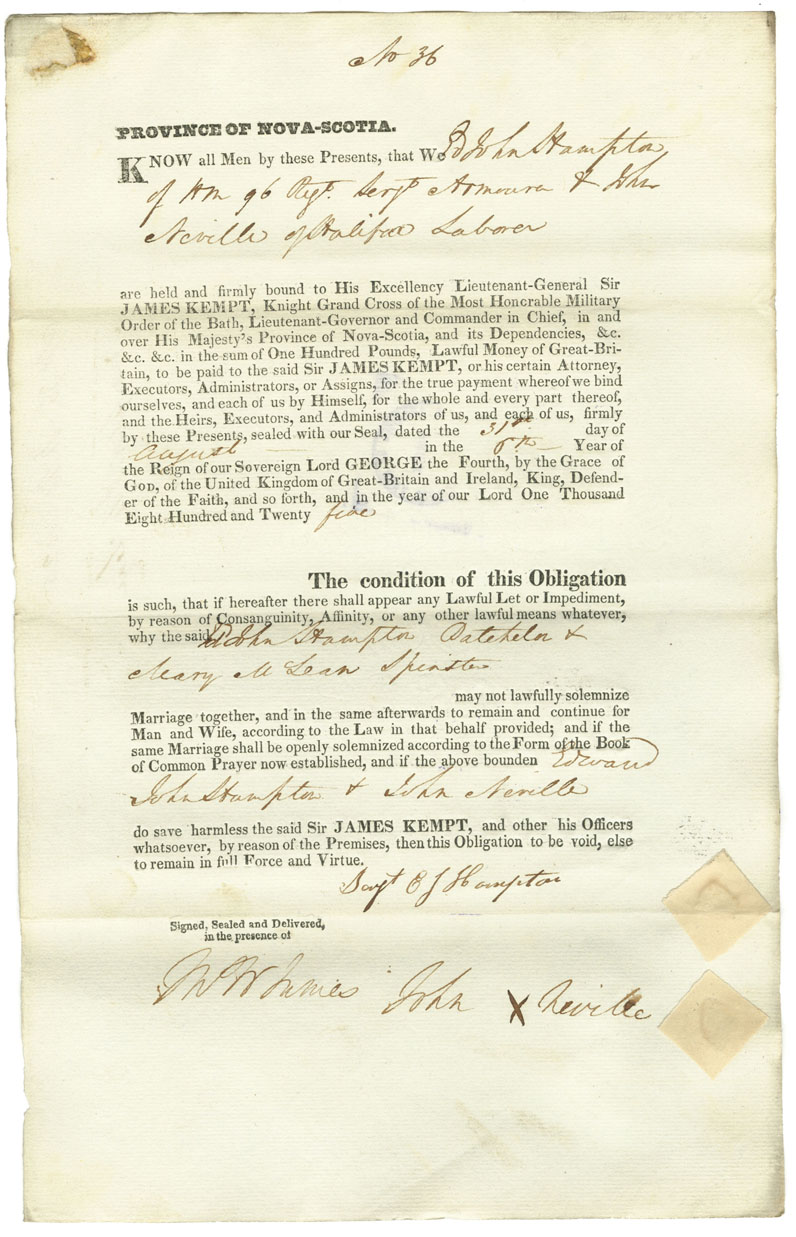 No 36
PROVINCE OF NOVA-SCOTIA.
KNOW all Men by these Presents, that We Ed John Hampton
of HM 96 Regt. Sergt Armourer & John
Neville of Halifax Laborer
are held and firmly bound to His Excellency Lieutenant-General Sir
JAMES KEMPT, Knight Grand Cross of the Most Honorable Military
Order of the Bath, Lieutenant-Governor and Commander in Chief, in and
over His Majesty's Province of Nova-Scotia, and its Dependencies, &c.
&c. &c. in the sum of One Hundred Pounds, Lawful Money of Great-Bri-
tain, to be paid to the said Sir JAMES KEMPT, or his certain Attorney,
Executors, Administrators, or Assigns, for the true payment whereof we bind
ourselves, and each of us by Himself, for the whole and every part thereof,
and the Heirs, Executors, and Administrators of us, and each of us, firmly
by these Presents, sealed with our Seal, dated the 31st day of
August in the 6th Year of
the Reign of our Sovereign Lord GEORGE the Fourth, by the Grace of
GOD, of the United Kingdom of Great-Britain and Ireland, King, Defend-
er of the Faith, and so forth, and in the year of our Lord One Thousand
Eight Hundred and Twenty five
The condition of this Obligation
is such, that if hereafter there shall appear any Lawful Let or Impediment,
by reason of Consanguinity, Affinity, or any other lawful means whatever,
why the said Ed John Hampton Batchelor &
Mary McLean Spinster
may not lawfully solemnize
Marriage together, and in the same afterwards to remain and continue for
Man and Wife, according to the Law in that behalf provided; and if the
same Marriage shall be openly solemnized according to the Form of the Book
of Common Prayer now established, and if the above bounden Edward
John Hampton & John Neville
do save harmless the said Sir JAMES KEMPT, and other his Officers
whatsoever, by reason of the Premises, then this Obligation to be void, else
to remain in full Force and Virtue.
Sergt E J Hampton
Signed, Sealed and Delivered,
in the presence of
John X Neville